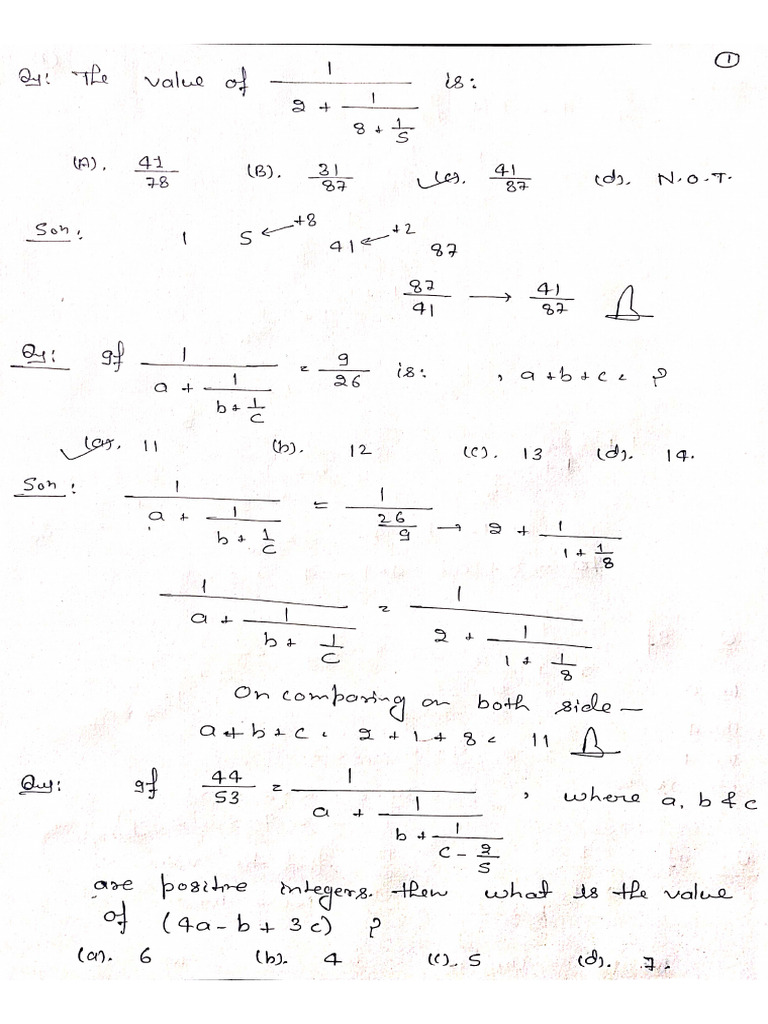 ①
Qu: The value of 1/(2 + 1/(8 + 1/5)) is:
(A). 41/78 (B). 31/87 (c). 41/87 (d). N.O.T.
Son: 1 5 ←+8 41 ←+2 87
87/41 → 41/87
Qu: If 1/(a + 1/(b + 1/c)) = 9/26 is: , a+b+c = ?
(a). 11 (b). 12 (c). 13 (d). 14.
Son: 1/(a + 1/(b + 1/c)) = 1/(26/9) → 2 + 1/(1 + 1/8)
1/(a + 1/(b + 1/c)) = 1/(2 + 1/(1 + 1/8))
On comparing on both side —
a+b+c = 2+1+8 = 11
Qu: If 44/53 = 1/(a + 1/(b + 1/(c - 2/5))) , where a, b & c
are positive integers. then what is the value
of (4a - b + 3c) ?
(a). 6 (b). 4 (c). 5 (d). 7.